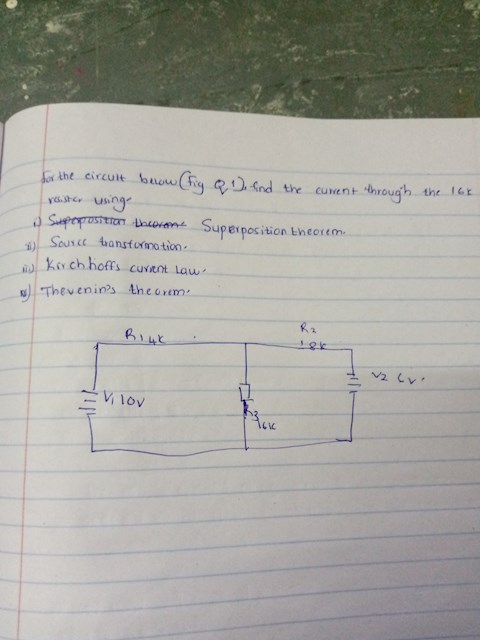 For the circuit below (Fig Q1), find the current through the 16k
resistor using-
i) Superposition theorem Superposition theorem.
ii) Source transformation.
iii) Kirchhoffs current Law.
iv) Thevenin's theorem.
R1 4k
R2
8k
V1 10V
V2 6v
R3
16k